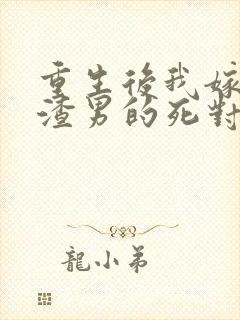 重生後我嫁
渣男的死對
龍小弟